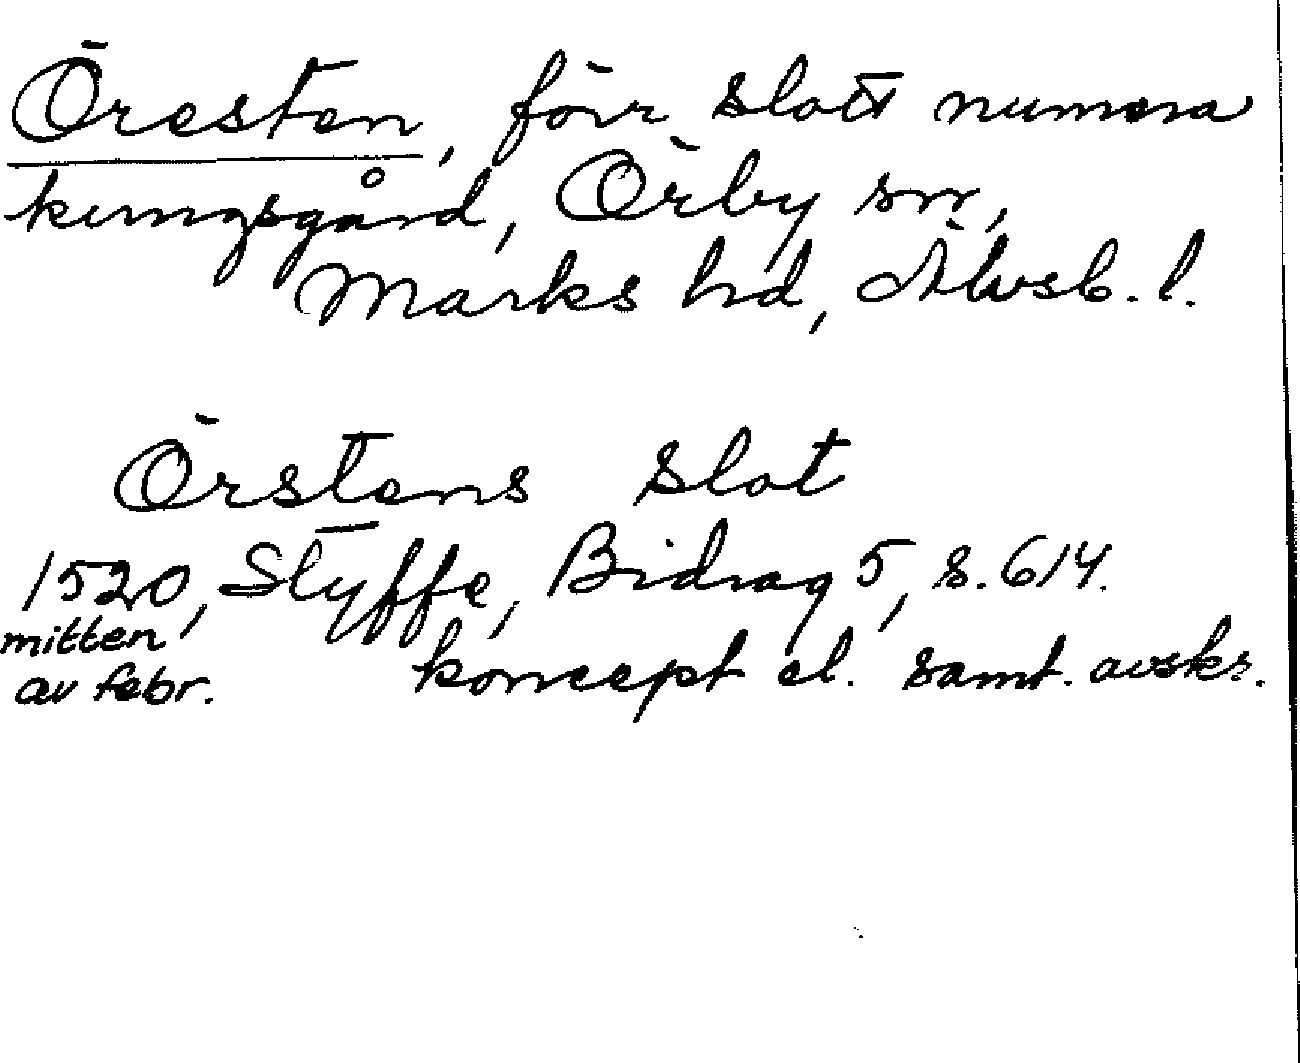 Öresten, förr slott numera
kungsgård, Örby sn,
Marks hd, Älvsb. l.
Örstens slot
1520, Styffe, Bidrag 5, s. 614.
mitten
av febr. koncept el. samt. avskr.